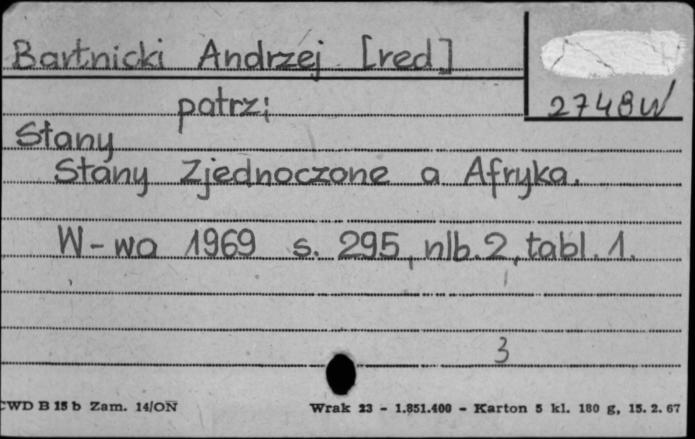 Bartnicki Andrzej [red]
2748W
patrz:
Stany
Stany Zjednoczone a Afryka.
W-wa 1969 s. 295, nlb. 2, tabl. 1.
3
CWD B 15 b Zam. 14/ON
Wrak 23 - 1.851.400 - Karton 5 kl. 180 g, 15. 2. 67